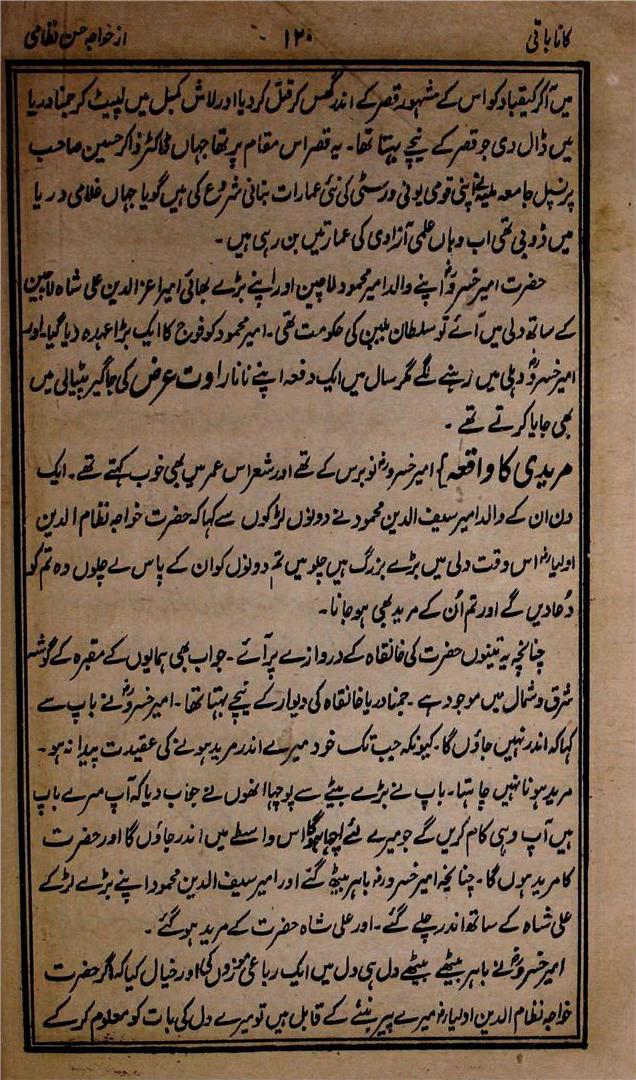 کانا باقی ۱۲۰ از خواجہ حسن نظامی
میں آکر کیقباد کو اس کے مشہور قصر کے اندر گھس کر قتل کر دیا اور لاش کمبل میں لپیٹ کر جمنا دریا
میں ڈال دی جو قصر کے نیچے بہتا تھا۔ یہ قصر اس مقام پر تھا جہاں ڈاکٹر ذاکر حسین صاحب
پرنسپل جامعہ ملیہ نے اپنی قومی یونی ورسٹی کی نئی عمارات بنانی شروع کی ہیں گویا جہاں غلامی دریا
میں ڈوبی تھی اب وہاں علمی آزادی کی عمارتیں بن رہی ہیں۔
حضرت امیر خسروؒ اپنے والد امیر محمود لاچین اور اپنے بڑے بھائی امیر اعز الدین علی شاہ لاچین
کے ساتھ دلی میں آئے تو سلطان بلبن کی حکومت تھی۔ امیر محمود کو فوج کا ایک بڑا عہدہ دیا گیا۔ اور
امیر خسروؒ دہلی میں رہنے لگے مگر سال میں ایک دفعہ اپنے نانا راوت عرض کی جاگیر پٹیالی میں
بھی جایا کرتے تھے۔
مریدی کا واقعہ} امیر خسروؒ نو برس کے تھے اور شعر اس عمر میں بھی خوب کہتے تھے۔ ایک
دن ان کے والد امیر سیف الدین محمود نے دونوں لڑکوں سے کہا کہ حضرت خواجہ نظام الدین
اولیاءؒ اس وقت دلی میں بڑے بزرگ ہیں چلو میں تم دونوں کو ان کے پاس لے چلوں وہ تم کو
دعا دیں گے اور تم اُن کے مرید بھی ہو جانا۔
چنانچہ یہ تینوں حضرت کی خانقاہ کے دروازے پر آئے۔ جو اب بھی ہمایوں کے مقبرہ کے گوشہ
شرق و شمال میں موجود ہے۔ جمنا دریا خانقاہ کی دیوار کے نیچے بہتا تھا۔ امیر خسروؒ نے باپ سے
کہا کہ اندر نہیں جاؤں گا۔ کیونکہ جب تک خود میرے اندر مرید ہونے کی عقیدت پیدا نہ ہو۔
مرید ہونا نہیں چاہتا۔ باپ نے بڑے بیٹے سے پوچھا انھوں نے جواب دیا کہ آپ میرے باپ
ہیں آپ وہی کام کریں گے جو میرے لئے اچھا ہوگا اس واسطے میں اندر جاؤں گا اور حضرت
کا مرید ہوں گا۔ چنانچہ امیر خسروؒ باہر بیٹھ گئے اور امیر سیف الدین محمود اپنے بڑے لڑکے
علی شاہ کے ساتھ اندر چلے گئے۔ اور علی شاہ حضرت کے مرید ہو گئے۔
امیر خسروؒ نے باہر بیٹھے بیٹھے دل ہی دل میں ایک رباعی موزوں کی اور خیال کیا کہ اگر حضرت
خواجہ نظام الدین اولیاءؒ میرے پیر بننے کے قابل ہیں تو میرے دل کی بات کو معلوم کر کے